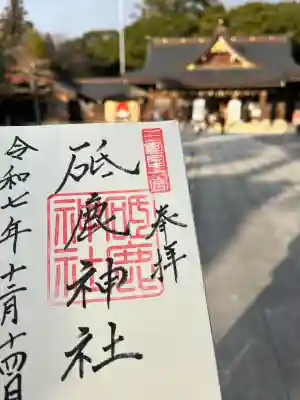 三河國一宮
奉拝
砥鹿神社
砥鹿神社
令和七年十二月十四日